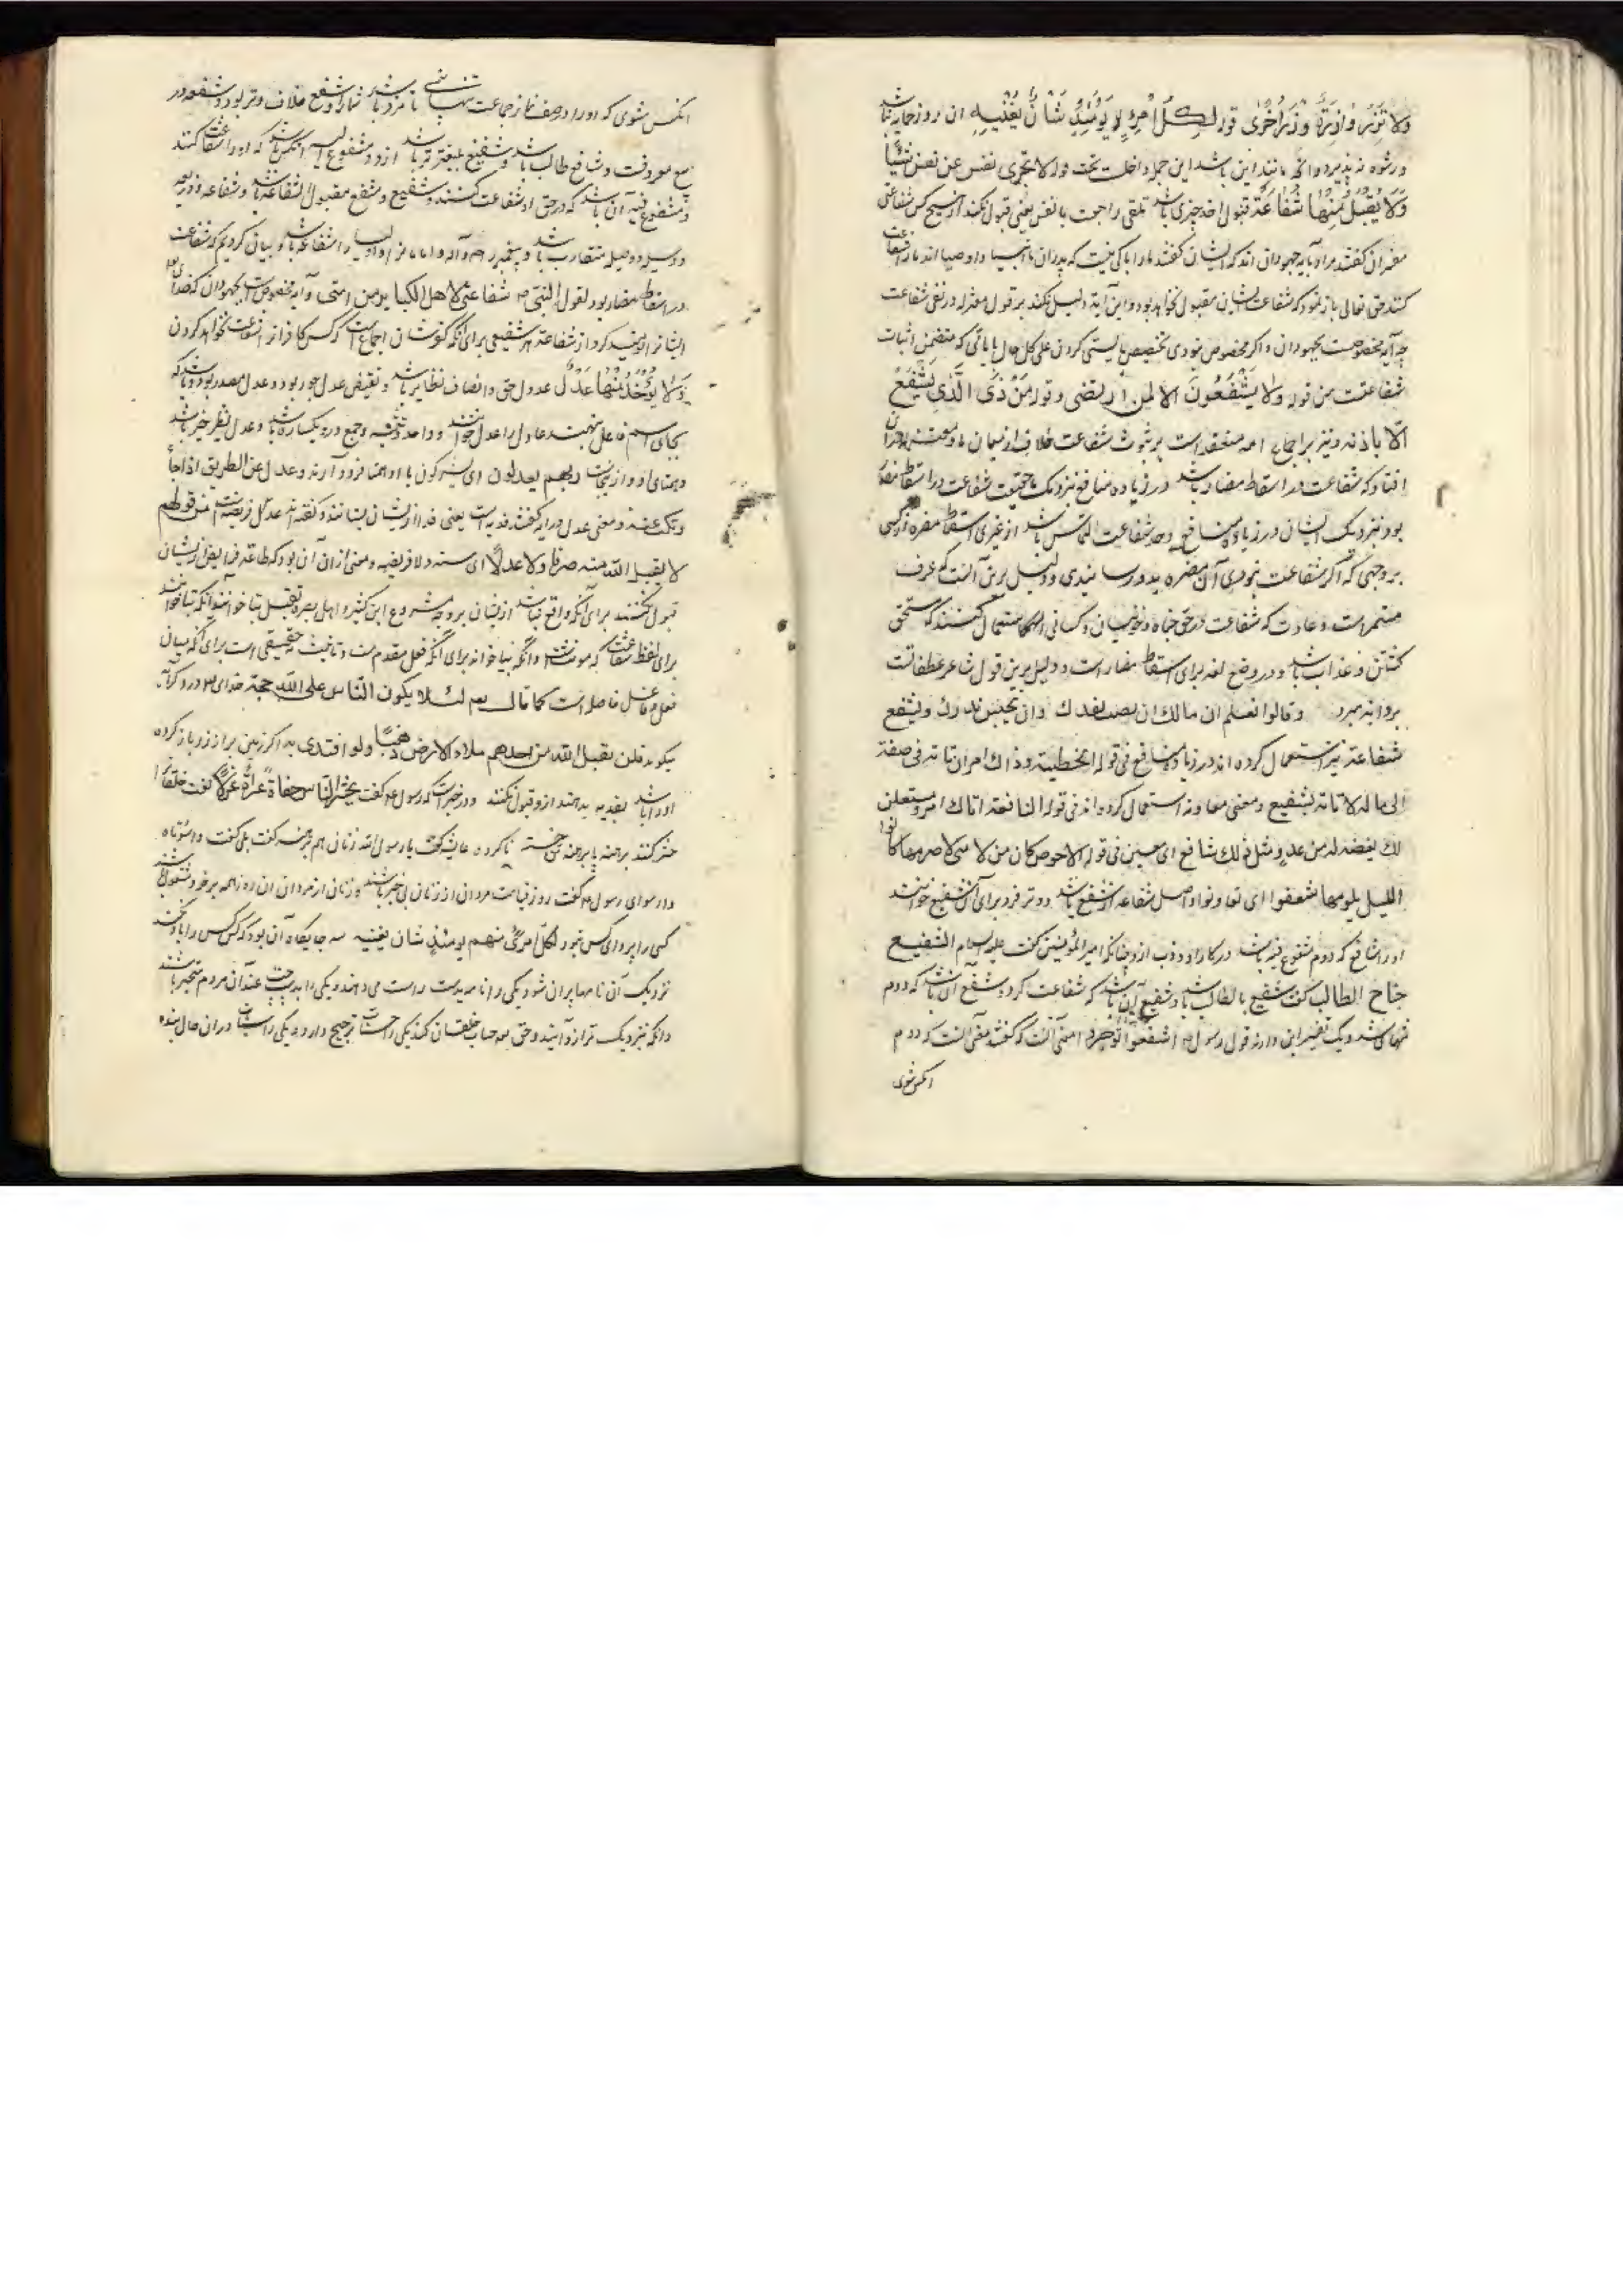 ولا تزر وازرة وزر اخرى قوله لكل امرئ يومئذ شأن يغنيه ان روز حمایه نباشد
ورشوه نپذیرد وانچه مانند این باشد این جمله داخلست تحت قوله لا تجزی نفس عن نفس شیئا
ولا يقبل منها شفاعة قبول اخذ چیزی باشد تلقی راجعت با نفس یعنی قبول نکنند از هیچ کس شفاعتی
مفسران گفتند مراد بآیه جهودان اند که ایشان گفتند ما را باکی نیست که پدران ما انبیا و اوصیا اند ما را شفاعت
کنند حق تعالی باز نمود که شفاعت ایشان مقبول نخواهد بود و این آیة دلیل نکند بر قول معتزله در نفی شفاعت
چه آیه مخصوصست بجهودان و اگر مخصوص نبودی تخصیص بایستی کردن علی کل حال بآیاتی که متضمن اثبات
شفاعتست من قوله ولا يشفعون الا لمن ارتضى وقوله من ذى الذي يشفع
الا باذنه و نیز براجماع امه منعقد است بر ثبوت شفاعت خلاف از میان ما و معتزله
افتاد که شفاعت در اسقاط مضار باشد در زیاده منافع نزدیک ما حقیقت شفاعت در اسقاط مضار
بود و نزدیک ایشان در زیاده منافع وحد شفاعت التماس باشد از غیری اسقاط مضره از کسی
بر وجهی که اگر شفاعت نبودی آن مضره بدو رسانیدی و دلیل برین آنست که عرف
مستمر است و عادت که شفاعت در حق جناه و کسانی استعمال کنند که مستحق
کشتن و عذاب باشد و در وضع لغه برای اسقاط مضار است و دلیل برین قول شاعر
وقالوا تعلم ان مالك ان يصب نفدك وان تحبس نذرك ونشفع
شفاعة نیز استعمال کرده اند در زیاده منافع فی قوله الحطيئة وذاك امر ان تاته فی صنیعة
الى ماله لا تاته بشفيع ومعنی معاونه استعمال کرده اند فی قوله النابغة اتاك امرؤ مستعلن
لك بغضه له من عدو مثل ذلك شافع ای معین فی قوله الاحوص كان من لامنی لاصرمها كانوا
الليل بلومها شفعوا ای تعاونوا و اصل شفاعه از شفع باشد و وتر فرد برای آن شفیع خوانند
او را شافع که دوم مشفوع فیه باشد در کار او امیر المؤمنین گفت علیه السلام الشفيع
جناح الطالب گفت شفیع بال طالب باشد و شفیع آن باشد که شفاعت کرد و شفع آن باشد که دوم
تنهای شد و یک تفسیر این دارد قول رسول اشفعوا توجروا معنی آنست که گفتند معنی آنست که دوم
انکس شوی
انکس شوی که او را در صف نماز جماعت تنها باشی تا مزد باشد شمارا و شفع خلاف وتر بود و شفعه در
بیع معروفست و شافع طالب باشد و شفیع بلیغتر باشد ازو و مشفوع آنکس باشد که او را شفاعت کنند
و مشفوع فیه آن باشد که در حق او شفاعت کنند و شفیع و مشفع مقبول الشفاعة باشد و شفاعه و ذریعه
و وسیله و وصیله متقارب باشد و پیغمبر را و آله و امامان را و اولیا را شفاعة باشد و بیان کردیم که شفاعت
در اسقاط مضار بود لقول النبی شفاعتي لاهل الكبائر من امتي و آیه مخصوص است بجهودان که خدای تعالی
ایشانرا نومید کرد از شفاعة هر شفیعی برای آنکه اجماع است که کس کافر انرا شفاعت نخواهد کردن
ولا يؤخذ منها عدل عدول حق و انصاف نظایر باشد و نقیض عدل جور بود و عدل مصدر بود و باشد که
بجای اسم فاعل بنهند عادل را عدل خوانند و واحد و تثنیه و جمع درو یکسان باشد و عدل نظیر چیز باشد
و همتای او و از اینجاست بربهم يعدلون ای با او همتا فرود آرند و عدل عن الطريق اذا جاز
وتنكب عنه و معنی عدل در آیه گفتند فدیه است یعنی فدا از ایشان نستانند و گفته اند عدل فریضه است من قولهم
لا يقبل الله منه صرفا ولا عدلا ای سنة ولا فریضه و معنی آن بود که طاعة فرایض از ایشان
قبول نکنند برای آنکه واقع نباشد از ایشان بر وجه مشروع ابن کثیر و اهل بصره تقبل بتا خوانند آنکه بتا خواند
برای لفظ شفاعت که مونث است و آنکه بیا خواند برای آنکه فعل مقدم است و تانیث نه حقیقی است برای آنکه میان
فعل و فاعل فاصله است كما قال تعالى لئلا يكون للناس على الله حجة خدای تعالی در قرآن
میگوید فلن يقبل الله من احدهم ملاء الارض ذهبا ولو افتدى به اگر زمین پر از زر باز کرده
او را باشد بفدیه بدهند ازو قبول نکنند و در خبر است که رسول گفت يحشر الناس حفاة عراة غرلا گفت خلقانرا
حشر کنند برهنه پای برهنه تن ختنه ناکرده عایشه گفت یا رسول الله زنان هم برهنه گفت بلی گفت واسوأتاه
رسول گفت روز قیامت مردان از زنان بی خبر باشند و زنان از مردان ان روز همه بر خود مشغول باشند
کسی را پروای کس نبود لكل امرئ منهم يومئذ شان يغنيه سه جایگاه آن بود که کس کس را یاد نکند
نزدیک آن نامها پران شود یکی را نامه بدست راست می دهند و یکی را بدست چپ عند آن مردم متحیر باشند
و آنکه نزدیک ترازو آیند و حق تعالی حساب خلقان کند یکی را حسنات ترجیح دارد و یکی را سیئات در ان حال بنده